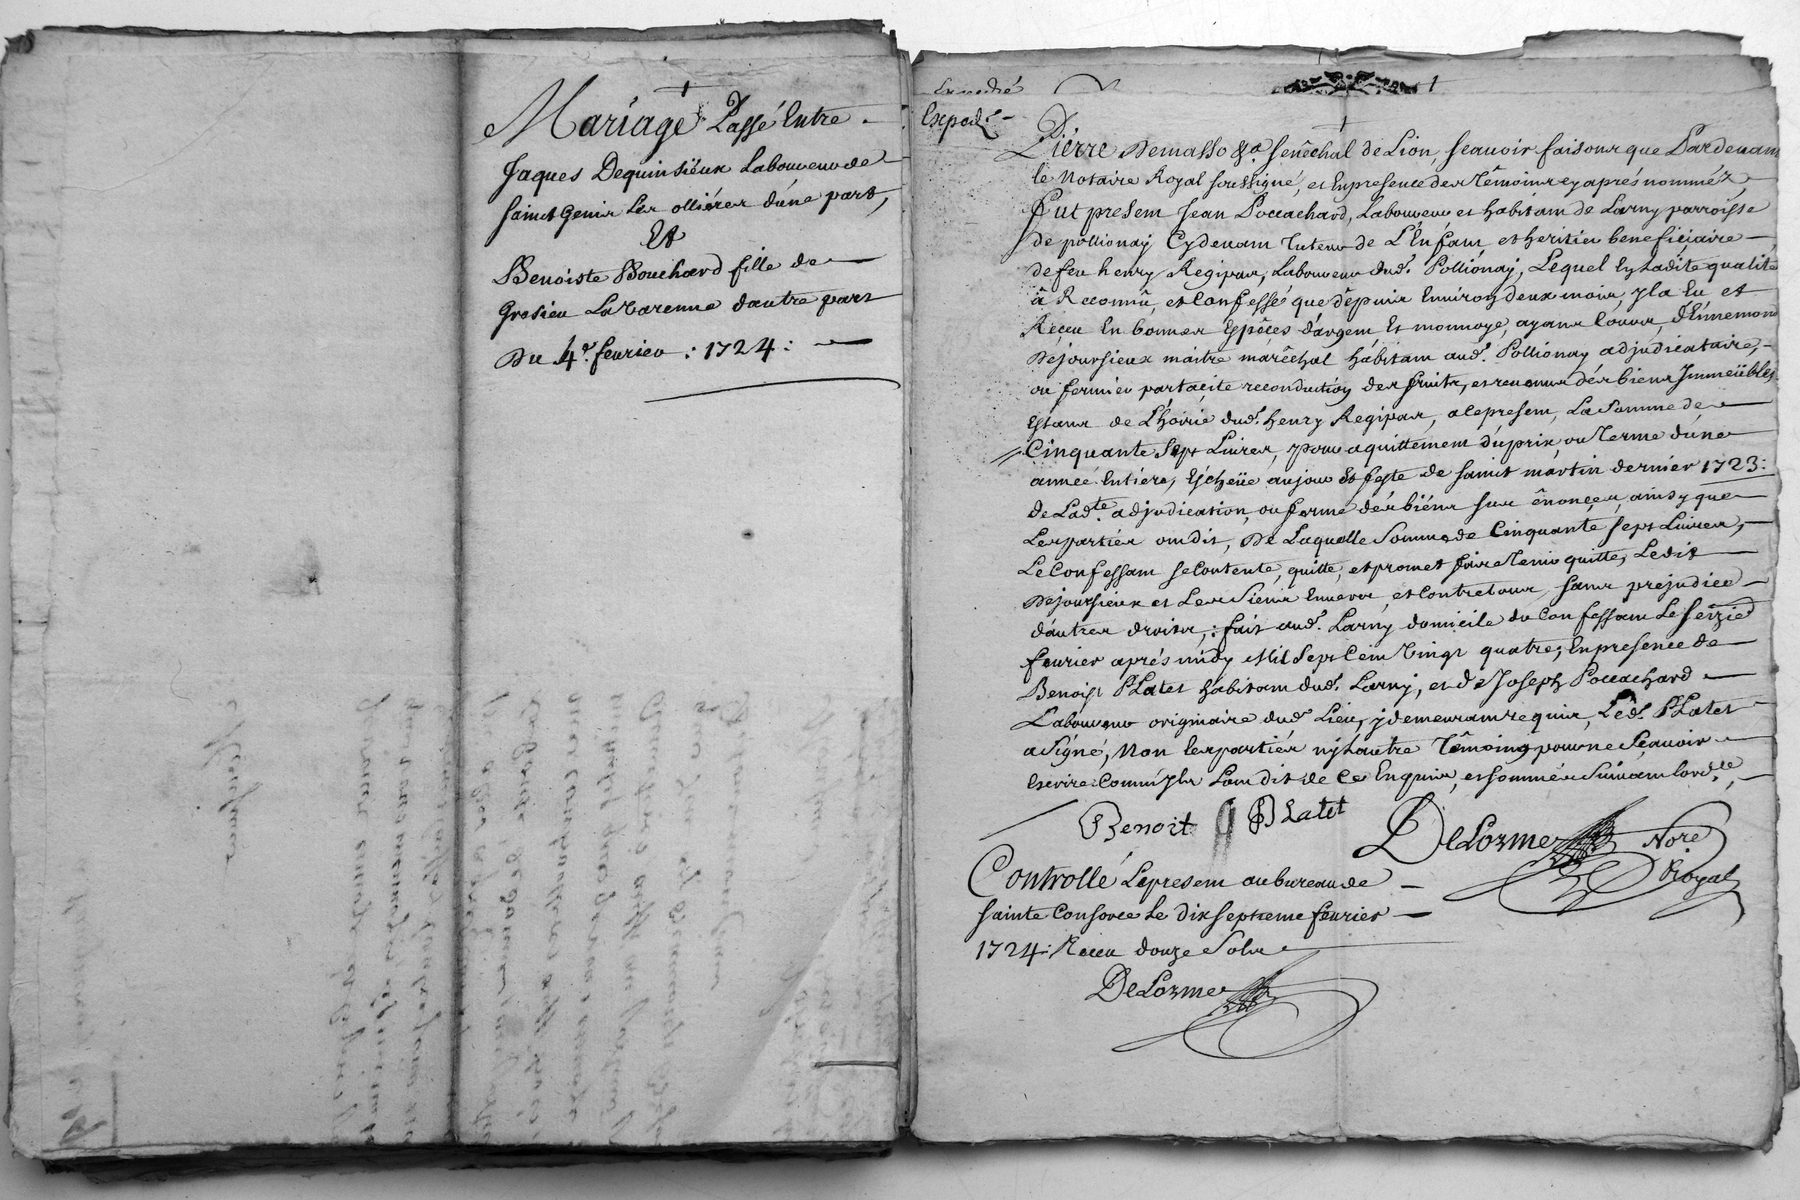 Mariage Passé Entre
Jaques Dequinsieux Laboureur de
sainct Genis Les ollières d'úne part,
Et
Benoiste Bouchard fille de
Gresieu La Varenne dautre part
Du 4e. feurier : 1724 :
Expedié
Exped.
Pierre Demasso &a. senêchal de Lion, scauoir faisons que Pardeuant
le Notaire Royal soussigné, et En presence des Têmoins cy aprés nommés,
Fut present Jean Poccachard, Laboureur et habitant de Larny parroisse
de pollionaÿ Cydeuant Tuteur de L'Enfant et heritier beneficiaire
defeu henry Regipas, Laboureur dud. Pollionaÿ, Lequel En Ladite qualité
â Reconnû, et Confessé que dêpuis Enuiron deux mois, Jl a Eu et
Receu En bonnes Espêces d'argent Et monnoye, ayant Cours, d'Ennemond
Dejoursieux maitre marêchal habitant aud. Pollionay adjudicataire,
ou fermier par tacite reconduction des fruits, et reuenus dés biens Jmmeübles
Estans de L'hoirie dud. henry Regipas, ale present, La Somme de
Cinquante Sept Liures, pour aquittement du prix, ou Terme d'une
année Entiére, Escheüe au jour Et feste de sainct martin dernier 1723:
de Ladte. adjudication, ou ferme dés biéns sus ênoncés, ainsy que
Les partiés ont dit, De Laquelle Somme de Cinquante sept Liures,
Le Confessant se Contente, quitte, et promet faire Tenir quitte, Ledit
Dejoursieux et Les Siens Enuers, et Contre tous, sans prejudice
d'autres droits, : fait aud. Larny domicile du Confessant Le seizie
feurier aprés midy Mil Sept Cent Vingt quatre; En presence de
Benoist PLatet habitant dud. Larnÿ, et de Joseph Poccachard
Laboureur originaire dud. Lieu, y demeurant requis, Led. PLatet
a Signé, Non les partiés ny Lautre Têmoing pour ne Sçauoir
Escrire Comm'Jls L'ont dit de Ce Enquis, et sommés Suiuant lordce,
Benoit PLatet
DeLorme Nore
Royal
Controllé Le present au bureau de
sainte Consorce Le dixseptieme feurier
1724: Receu douze Sols
DeLorme